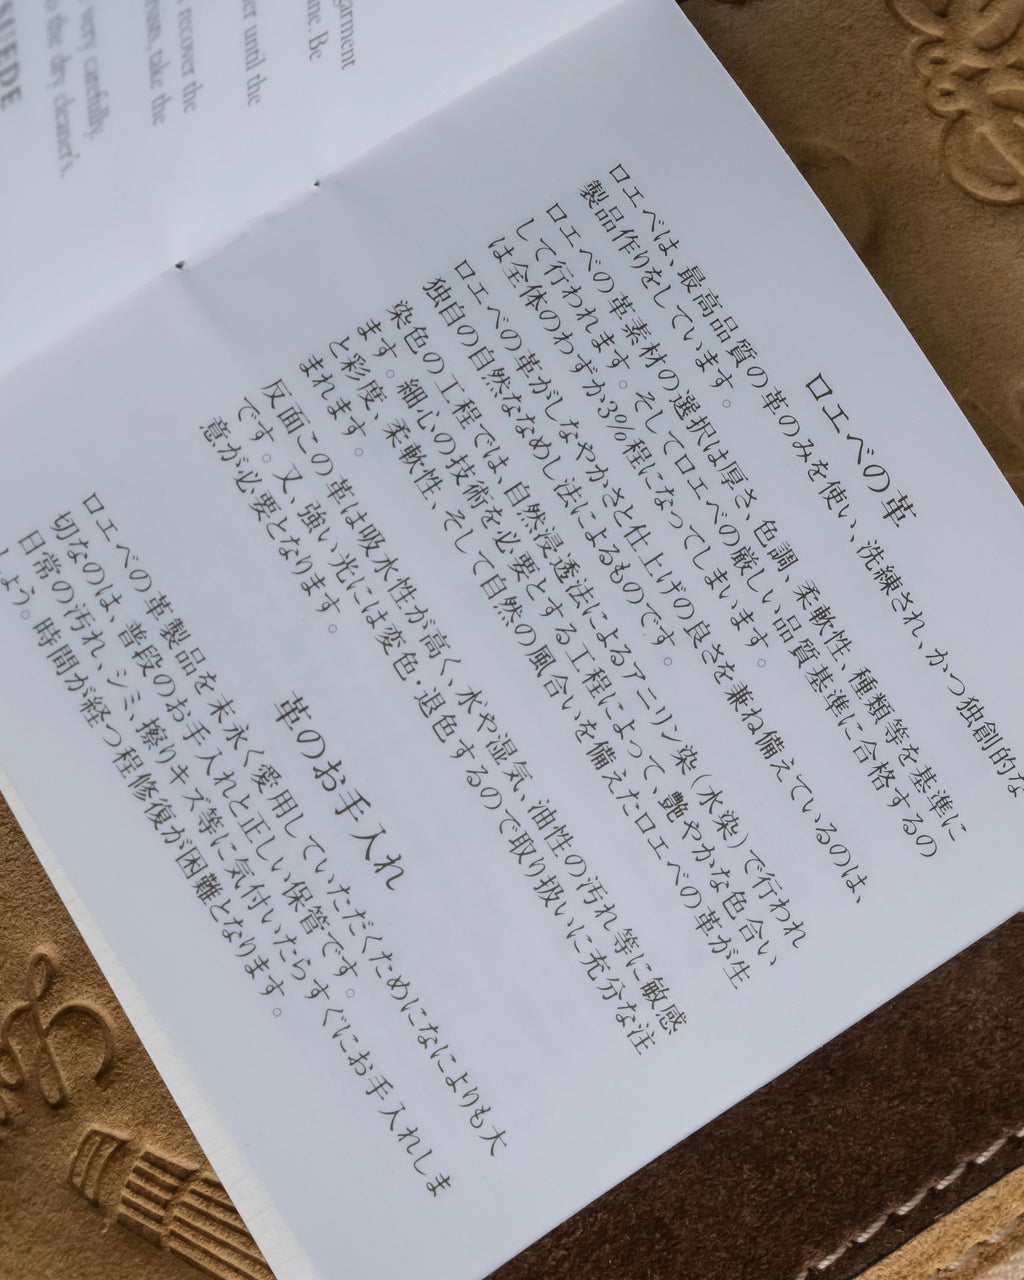 garment
ne. Be
er until the
recover the
take the
very carefully,
the dry cleaner's.
SUEDE
ロエベの革
ロエベは、最高品質の革のみを使い、洗練され、かつ独創的な
製品作りをしています。
ロエベの革素材の選択は厚さ、色調、柔軟性、種類等を基準に
して行われます。そしてロエベの厳しい品質基準に合格するの
は全体のわずか3％程になってしまいます。
ロエベの革がしなやかさと仕上げの良さを兼ね備えているのは、
独自の自然ななめし法によるものです。
染色の工程では、自然浸透法によるアニリン染(水染)で行われ
ます。細心の技術を必要とする工程によって、艶やかな色合い
と彩度、柔軟性、そして自然の風合いを備えたロエベの革が生
まれます。
反面この革は吸水性が高く、水や湿気、油性の汚れ等に敏感
です。又、強い光には変色・退色するので取り扱いに充分な注
意が必要となります。
革のお手入れ
ロエベの革製品を末永く愛用していただくためになによりも大
切なのは、普段のお手入れと正しい保管です。
日常の汚れ、シミ、擦りキズ等に気付いたらすぐにお手入れしま
しょう。時間が経つ程修復が困難となります。